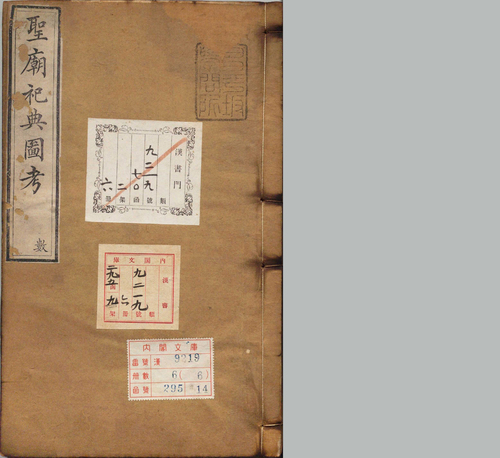 聖廟祀典圖考
數
漢書門
類
九二一九號
七〇函
二架
六冊
內閣文庫
漢書
九二一九
六
內閣文庫
番號 漢 9219
冊數 6(6)
函號 295 14